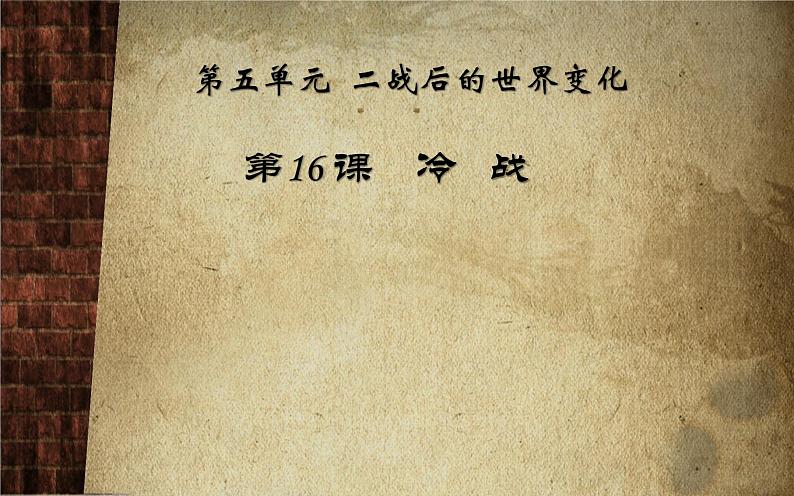 第五单元 二战后的世界变化
第16课 冷 战